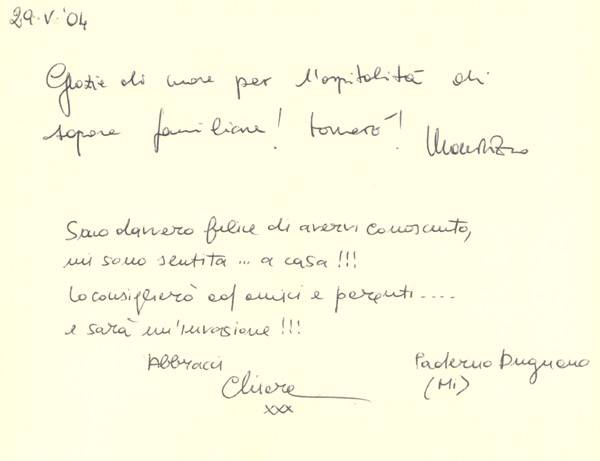 29.V.'04
Grazie di cuore per l'ospitalità di
sapore familiare! tornerò! Maurizio
Sono davvero felice di avervi conosciuto,
mi sono sentita ... a casa!!!
Lo consiglierò ad amici e parenti....
e sarà un'invasione!!!
Abbracci
Chiara
xxx
Paderno Dugnano
(MI)